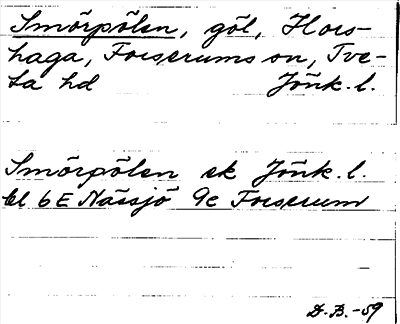 Smörpölen, göl, Hors-
haga, Forserums sn, Tve-
ta hd Jönk. l.
Smörpölen ek Jönk. l.
bl 6E Nässjö 9c Forserum
D. B. -59